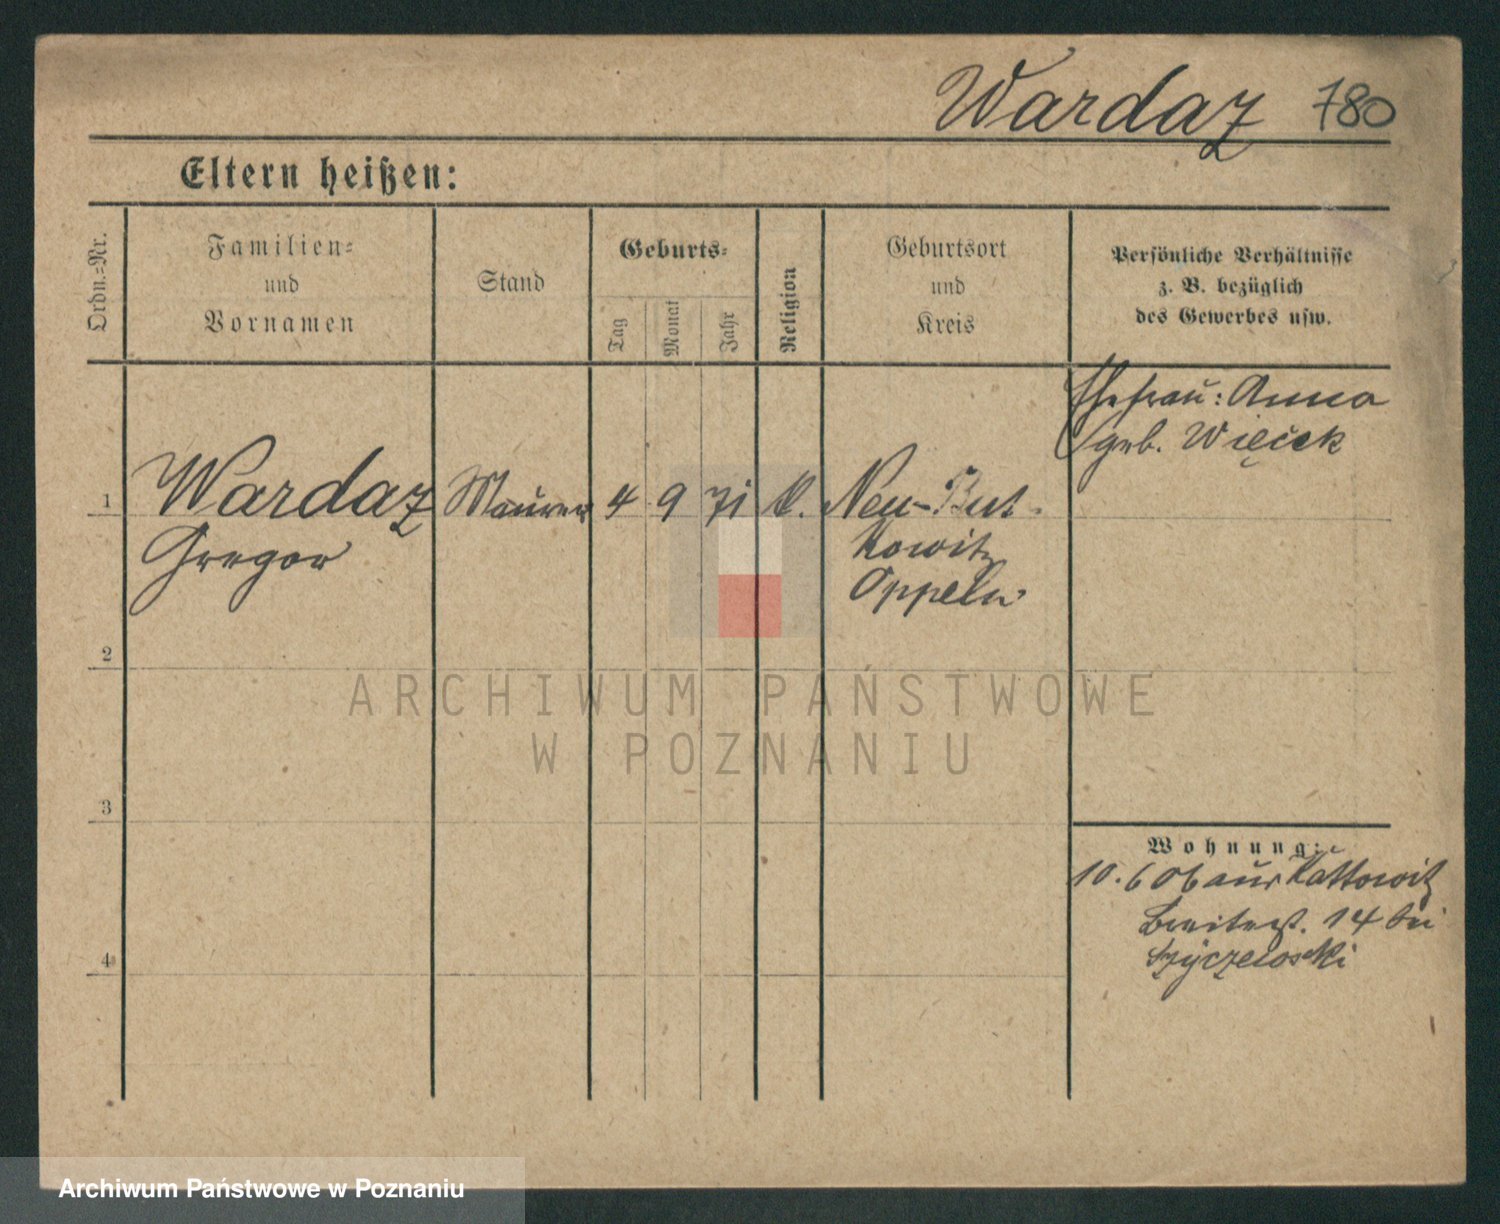 Wardaz 780
Eltern heißen:
Ordn.=Nr.
Familien=
und
Vornamen
Stand
Geburts=
Tag
Monat
Jahr
Religion
Geburtsort
und
Kreis
Persönliche Verhältnisse
z. B. bezüglich
des Gewerbes usw.
Ehefrau: Anna
geb. Więcek
1 Wardaz Maurer 4 9 71 k. Neu-But-
Gregor kowitz
Oppeln
2
3
4
Wohnung:
10.6 06 aus Kattowitz
Breitest. 14 bei
ARCHIWUM PAŃSTWOWE
W POZNANIU
Archiwum Państwowe w Poznaniu